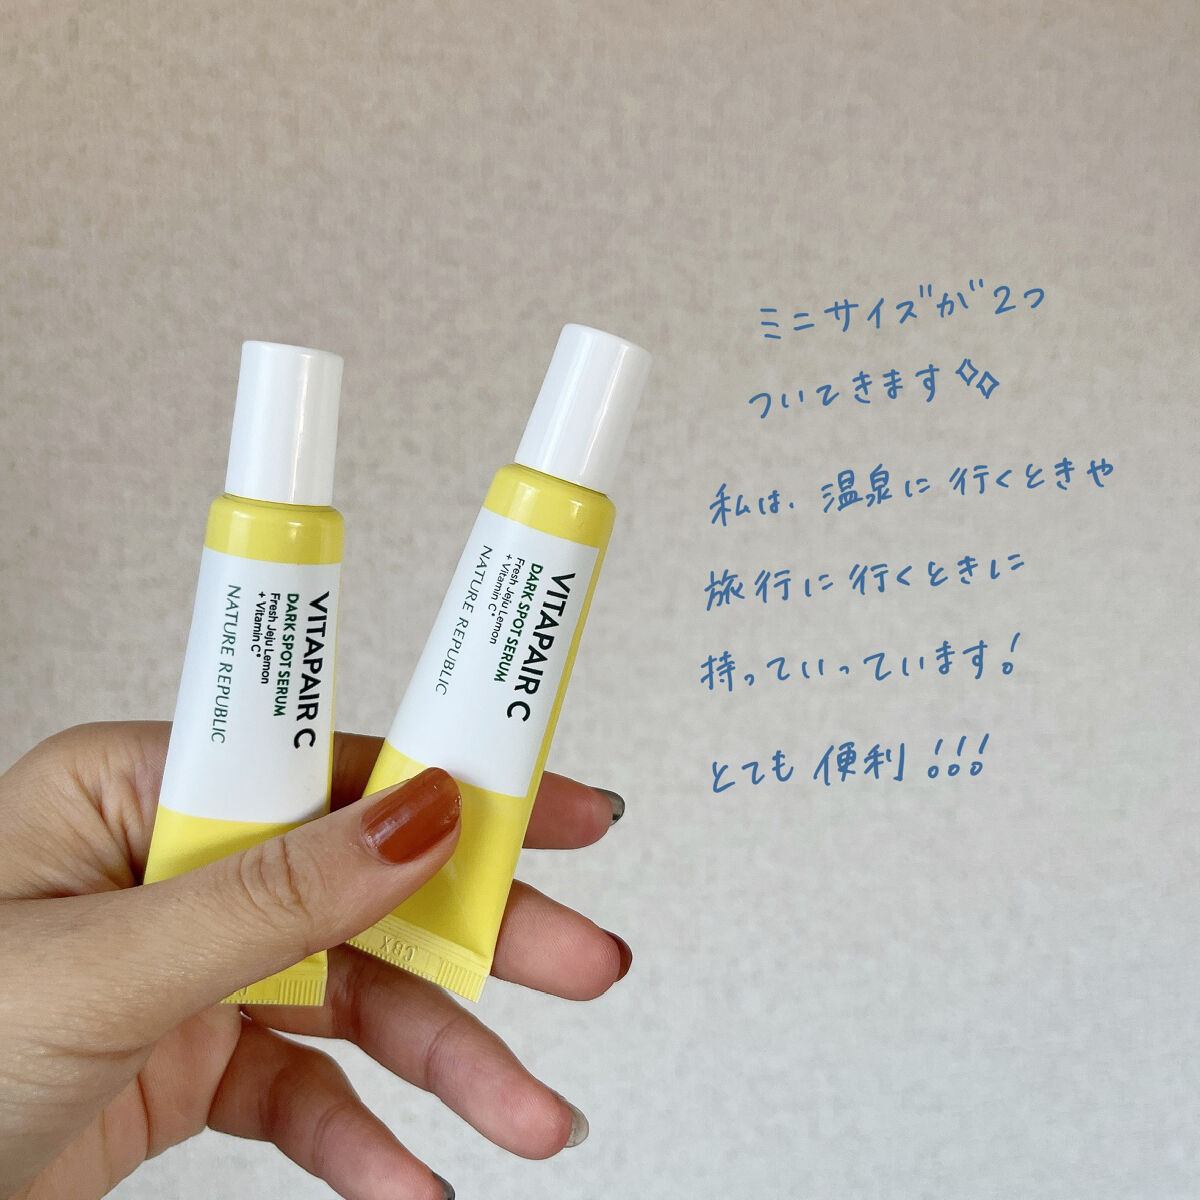 ミニサイズが2つ
ついてきます
私は、温泉に行くときや
旅行に行くときに
持っていっています!
とても便利!!!
VITAPAIR C
DARK SPOT SERUM
Fresh Jeju Lemon
+ Vitamin C*
NATURE REPUBLIC
VITAPAIR C
DARK SPOT SERUM
Fresh Jeju Lemon
+ Vitamin C*
NATURE REPUBLIC